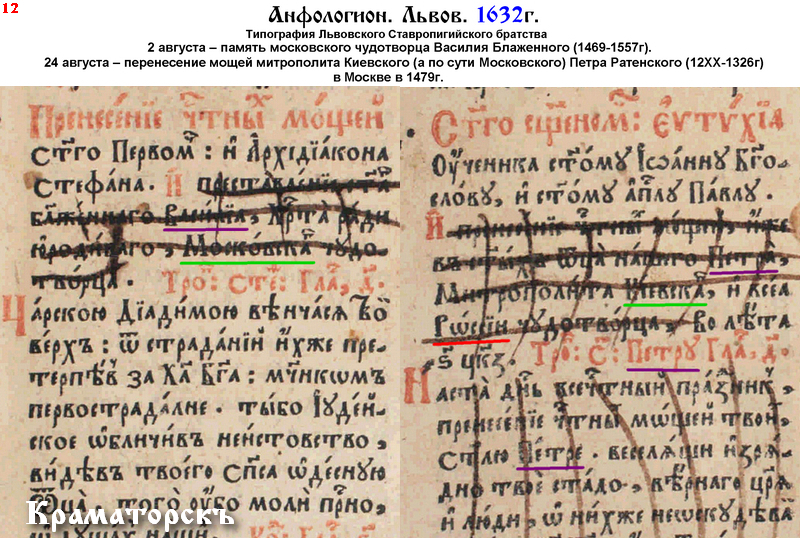 12
Анфологион. Львов. 1632г.
Типография Львовского Ставропигийского братства
2 августа – память московского чудотворца Василия Блаженного (1469-1557г).
24 августа – перенесение мощей митрополита Киевского (а по сути Московского) Петра Ратенского (12XX-1326г)
в Москве в 1479г.
Пренесе́нїе чⷭ҇тны́хъ мо́щей
Ст҃го Первомⷱ҇: и҆ А҆рхїдїа́кона
Стефа́на. И҆ преставле́нїе ст҃а
бл҃же́ннаго Васи́лїа, Хрⷭ҇та̀ ра́ди
ю҆ро́диваго, Моско́вскаⷢ҇ чудо-
тво́рца. Троⷫ҇: Стеⷴ҇: Глаⷭ҇, д҃.
Ца́рскою Дїади́мою вѣнча́сѧ Тво́й
ве́рхъ: ѿ страда́нїй и҆́хже пре-
терпѣ́въ за Хаⷭ҇ Бг҃а: мч҃нкѡмъ
первострада́лне. ты́бо І҆уде́й-
ское ѡ҆бличи́въ неи́стовство,
ви́дѣвъ твоего̀ Сп҃са ѡ҆десну́ю
Ѻ҆ц҃а̀, того̀ ᲂу҆́бо молѝ прⷭ҇но,
Ст҃го сщ҃еномⷱ҇: Є҆ѵтѵ́хїа
Оу҆ченика̀ ст҃о́му І҆ѡа́нну Бг҃о-
сло́ву, и҆ ст҃о́му а҆пⷭ҇лу Па́влу.
И҆ пренесе́нїе чⷭ҇тны́хъ мо́щей, и҆́же
въ ст҃ы́хъ ѻ҆ц҃а̀ на́шего Петра̀,
Митрополи́та Кі́евскаⷢ҇, и҆ всеѧ̀
Рѡссі́и чудотво́рца, во лѣ́та
Троⷫ҇: С҃: Петру̀ Глаⷭ҇, д҃.
Наста̀ дн҃ь всечⷭ҇тны́й пра́здникъ,
пренесе́нїе чⷭ҇тны́хъ мѡще́й твои́хъ,
ст҃лю Пе́тре. веселѧ́щи и҆зрѧ́-
дно твоѐ ста́до, вѣ́рнаго цр҃ѧ̀
и҆ лю́ди, ѡ҆ ни́хже неѡскудѣ́вай
Краматорскъ